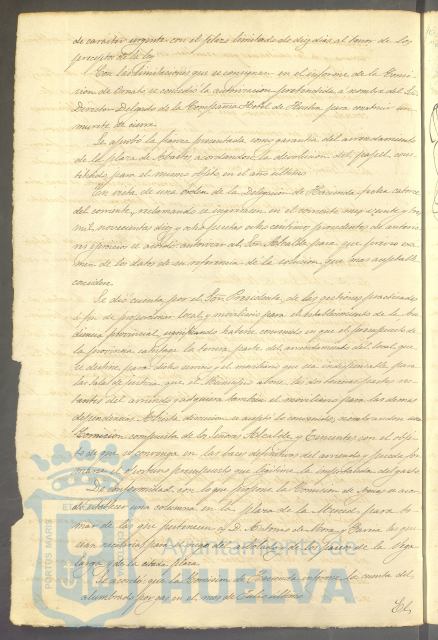 de caracter urgente con el plazo limitado de diez dias al tenor de los
preceptos de la ley
Con las limitaciones que se consignan en el informe de la Comi-
sion de Ornato se concedio la autorizacion pretendida á nombre del Sr.
Director Delegado de la Compañia Hotel de Huelva para construir un
murete de cierre.
Se aprobó la fianza presentada como garantia del arrendamiento
de la plaza de Abastos, acordandose la devolucion del papel, cons-
tituido para el mismo objeto en el año último
En vista de una orden de la Delegacion de Hacienda fecha catorce
del corriente, reclamando se ingresen en el corriente mes
mil novecientas diez y ocho pesetas ocho centimos procedentes de anterio-
res ejercicios se acordó autorizar al Sor. Alcalde para que previo exa-
men de los datos de su referencia dé la solucion que mas aceptable
considere.
Se dió cuenta por el Sor. Presidente, de las gestiones practicadas
á fin de proporcionar local y mobiliario para el establecimiento de la Au-
diencia provincial, significando haberse convenido en que el presupuesto de
la provincia satisfaga la tercera parte del arrendamiento del local que
se destine para dicho servicio y el mobiliario que sea indispensable para
las Salas de Justicia, que el Municipio abone las dos terceras partes res-
tantes del arriendo y adquiera tambien el mobiliario para las demas
dependencias. discusion se aceptó lo convenido, nombrandose una
Comision compuesta de los Señores Alcalde y Tenientes con el obje-
to de que se convenga en las bases definitivas del arriendo y pueda for-
marse el oportuno presupuesto que legitime la imputacion del gasto
De conformidad con lo que propone la Comision de se acor-
dó establecer una columna en la plaza de la Merced, para to-
mar de las que pertenecen á D. Antonio de Mora y Parra las que
sean para el riego de arbolado de los Paseos de la Vega
larga y de la citada plaza.
Se acordó que la Comision de Hacienda informe la cuenta del
alumbrado por gas en el mes de Julio último
El
Ayuntamiento de
HUELVA
PORTUS MARIS